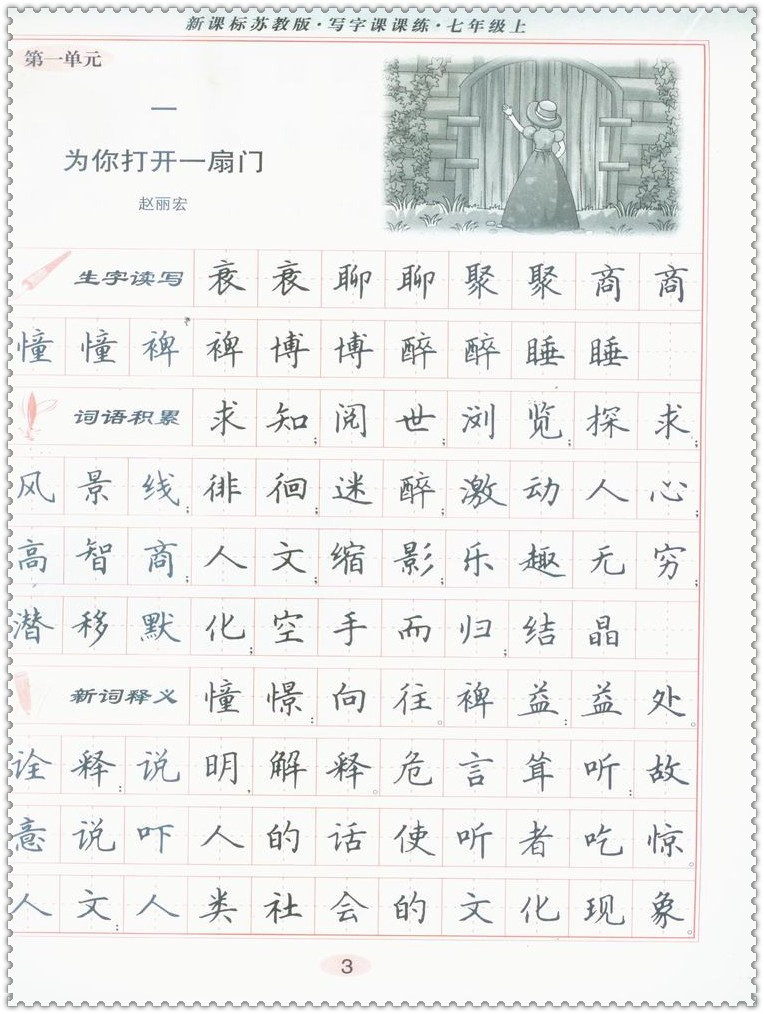 新课标苏教版·写字课课练·七年级上
第一单元
一
为你打开一扇门
赵丽宏
生字读写 衰 衰 聊 聊 聚 聚 商 商
憧 憧 裨 裨 博 博 醉 醉 睡 睡
词语积累 求 知；阅 世；浏 览；探 求；
风 景 线；徘 徊；迷 醉；激 动 人 心；
高 智 商；人 文；缩 影；乐 趣 无 穷；
潜 移 默 化；空 手 而 归；结 晶
新词释义 憧 憬：向 往。裨 益：益 处。
诠 释：说 明，解 释。危 言 耸 听：故
意 说 吓 人 的 话 使 听 者 吃 惊。
人 文：人 类 社 会 的 文 化 现 象。
3